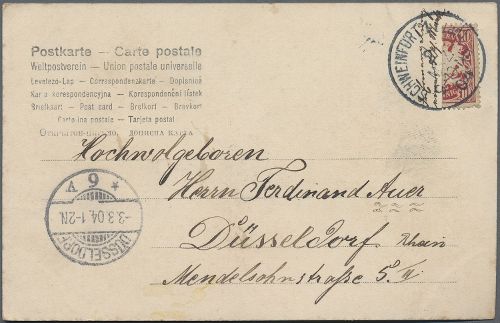 Postkarte — Carte postale
Weltpostverein — Union postale universelle
Levelező-Lap — Correspondenzkarte — Dopisnice
Karta korespondencyjna — Korespondenční lístek
Briefkaart — Post card — Brefkort — Brevkort
Cartolina postale — Tarjeta postal
Открытое письмо. ДОПИСНА КАРТА
SCHWEINFURT
Hochwolgeboren
Herrn Ferdinand Auer
Düsseldorf Rhein
Mendelsohnstraße 5. II
* 9 V
-3.3.04.1-2N
DÜSSELDORF